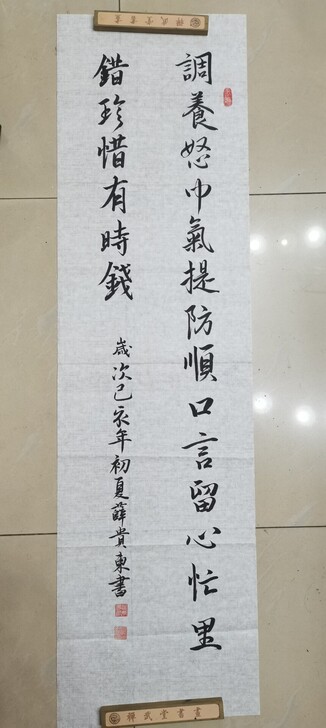 調養怒中氣提防順口言留心忙里
錯珍惜有時錢
歲次己亥年初夏薛貴東書